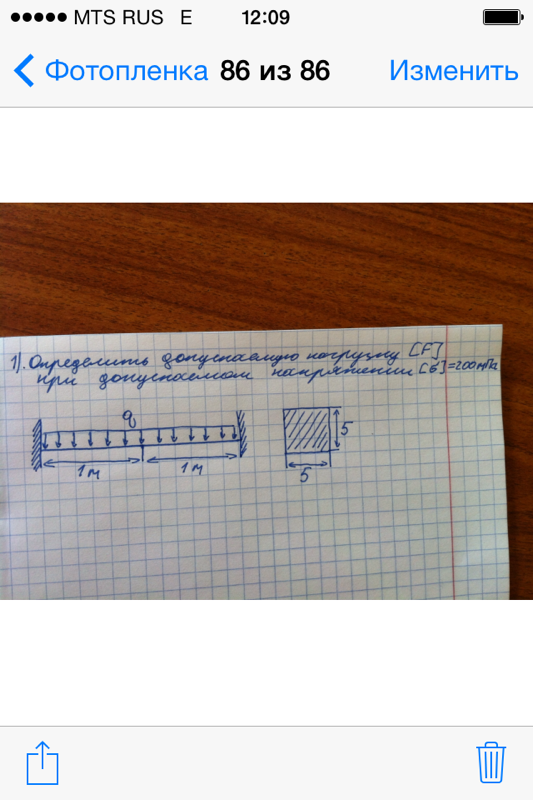 MTS RUS E 12:09
Фотопленка 86 из 86 Изменить
1). Определить допускаемую нагрузку [F]
при допускаемом напряжении [б]=200мПа
q
1м 1м
5
5